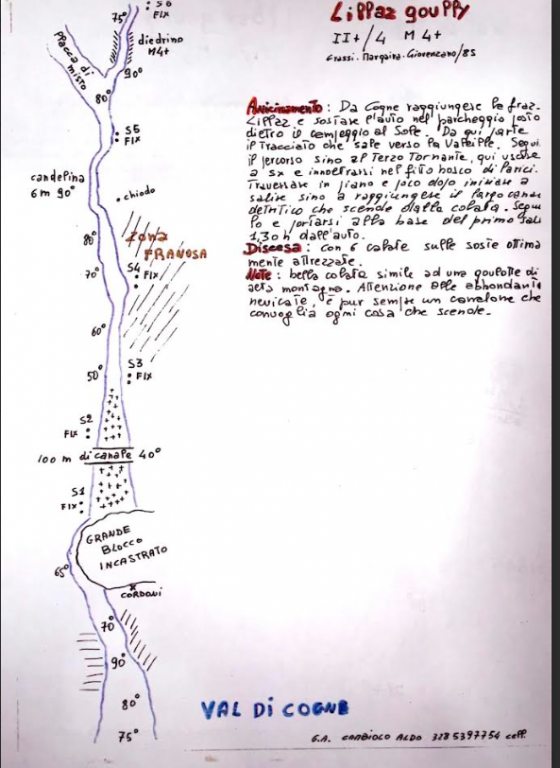 Lillaz gouPPy
II+/4 M 4+
Grassi - Margaira - Giovenzano/85
Avvicinamento: Da Cogne raggiungere la fraz.
Lillaz e sostare l'auto nel parcheggio posto
dietro il campeggio al Sole. Da qui parte
il tracciato che sale verso la Valeille. Segui
il percorso sino al Terzo Tornante, qui uscire
a sx e innoltrarsi nel fitto bosco di larici.
Traversare in piano e poco dopo iniziare a
salire sino a raggiungere il largo cana
detritico che scende dalla colata. Segui
lo e portarsi alla base del primo salt
1,30 h dall'auto.
Discesa: con 6 calate sulle soste ottima
mente attrezzate.
Note: bella colata simile ad una goulotte di
alta montagna. Attenzione alle abbondanti
nevicate, è pur sempre un canalone che
convoglia ogni cosa che scende.
S6
FIX
75°
diedrino
M4+
Placca di
misto
90°
80°
S5
FIX
candelina
6 m 90°
chiodo
80°
Zona
FRANOSA
S4
FIX
70°
60°
S3
FIX
50°
S2
FIX
100 m di canale 40°
S1
FIX
GRANDE
BLOCCO
INCASTRATO
65°
CORDONI
70°
90°
80°
75°
VAL DI COGNE
G.A. CAMBIOLO ALDO 328 5397754 cell.